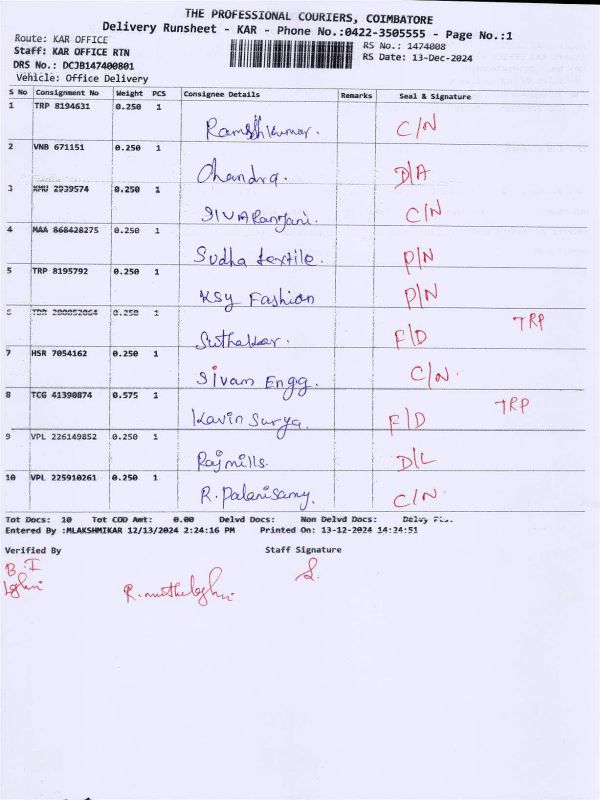 THE PROFESSIONAL COURIERS, COIMBATORE
Delivery Runsheet - KAR - Phone No.:0422-3505555 - Page No.:1
Route: KAR OFFICE RS No.: 1474008
Staff: KAR OFFICE RTN RS Date: 13-Dec-2024
DRS No.: DCJB147400801
Vehicle: Office Delivery
S No Consignment No Weight PCS Consignee Details Remarks Seal & Signature
1 TRP 8194631 0.250 1
Rameshkumar. C/N
2 VNB 671151 0.250 1
Chandra. D/A
3 KMU 2939574 0.250 1
SIVARanjani. C/N
4 MAA 868428275 0.250 1
Sudha textile. P/N
5 TRP 8195792 0.250 1
KSY Fashion P/N
0.250 1
Suthakar. F/D TRP
7 HSR 7054162 0.250 1
Sivam Engg. C/N.
8 TCG 41390874 0.575 1
Kavin Surya. F/D TRP
9 VPL 226149852 0.250 1
Rajmills. D/L
10 VPL 225910261 0.250 1
R. Palanisamy. C/N
Tot Docs: 10 Tot COD Amt: 0.00 Delvd Docs: Non Delvd Docs:
Entered By :MLAKSHMIKAR 12/13/2024 2:24:16 PM Printed On: 13-12-2024 14:24:51
Verified By Staff Signature